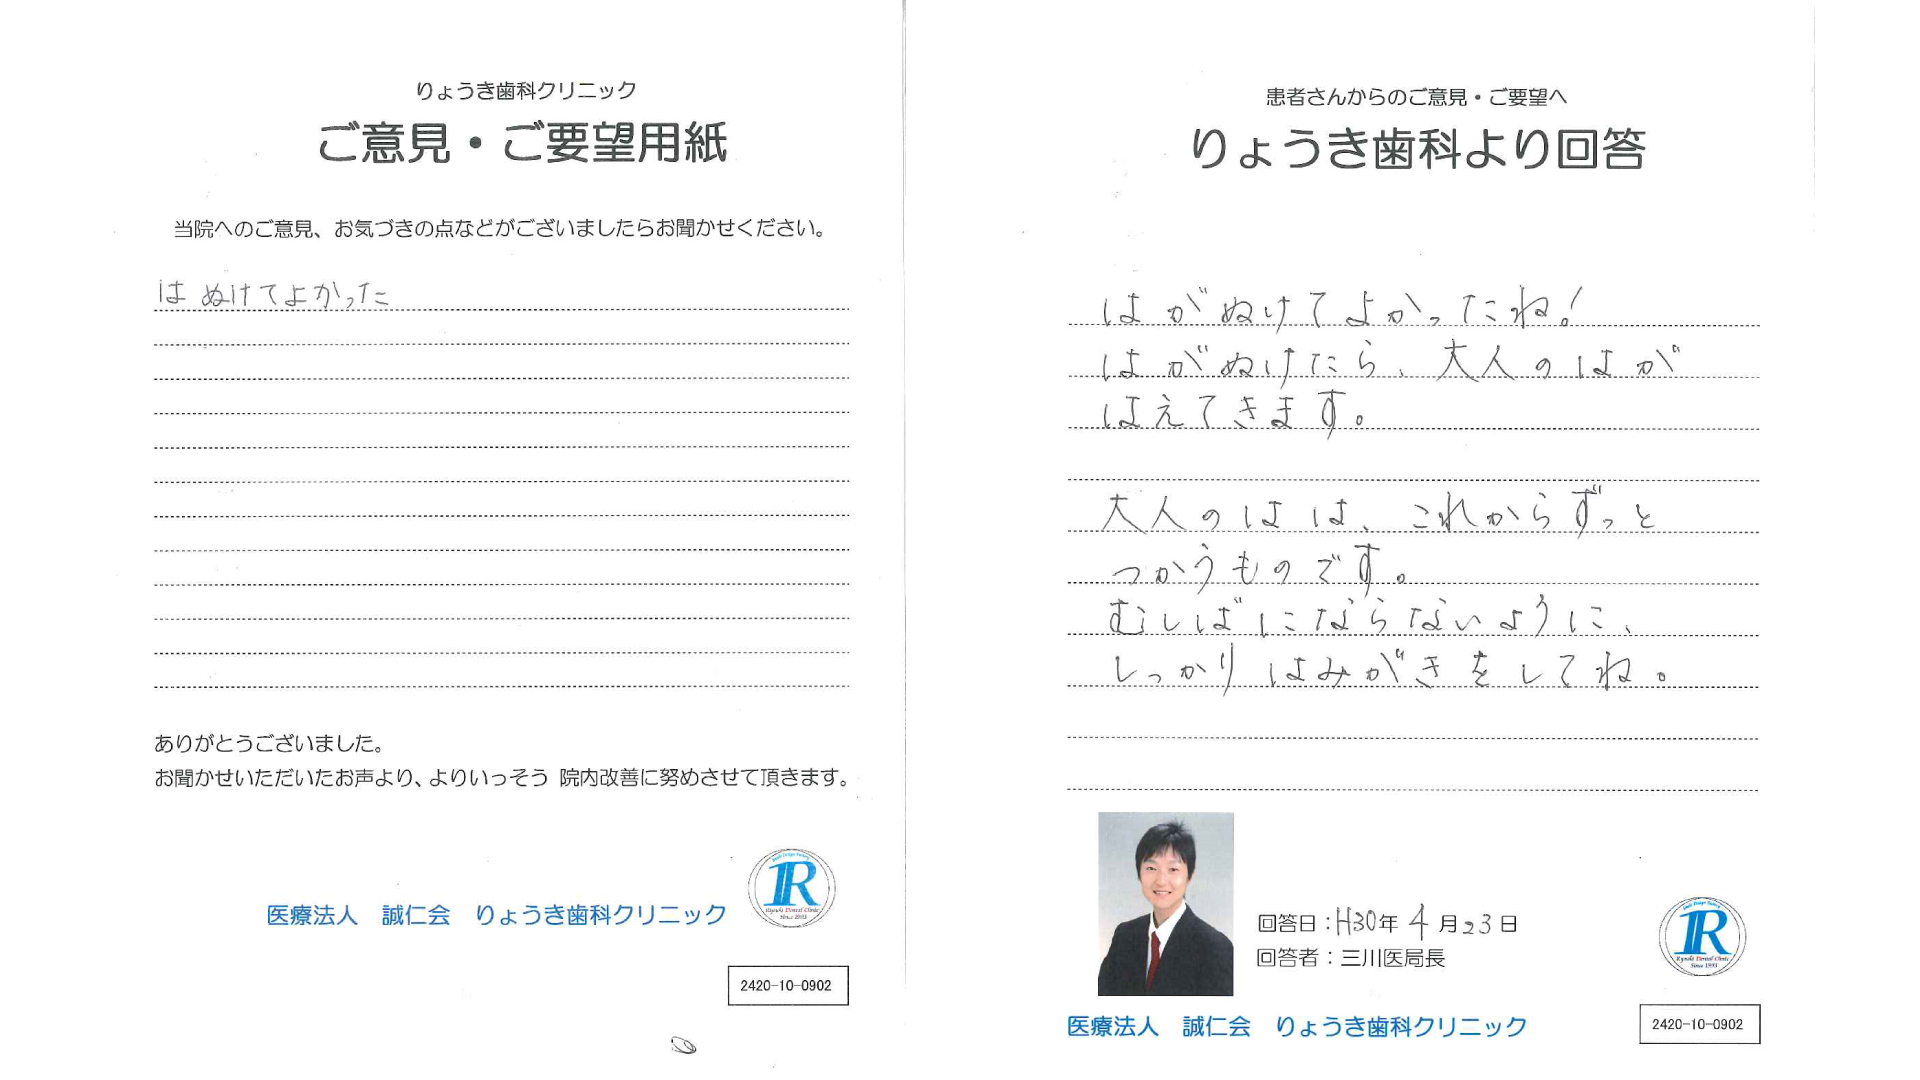 りょうき歯科クリニック
ご意見・ご要望用紙
当院へのご意見、お気づきの点などがございましたらお聞かせください。
は ぬけてよかった
ありがとうございました。
お聞かせいただいたお声より、よりいっそう 院内改善に努めさせて頂きます。
医療法人 誠仁会 りょうき歯科クリニック
R
Ryouki Dental Clinic
Since 1993
2420-10-0902
患者さんからのご意見・ご要望へ
りょうき歯科より回答
はがぬけてよかったね!
はがぬけたら、大人のはが
はえてきます。
大人のはは、これからずっと
つかうものです。
むしばにならないように、
しっかりはみがきをしてね。
回答日:H30年4月23日
回答者:三川医局長
R
Ryouki Dental Clinic
Since 1993
医療法人 誠仁会 りょうき歯科クリニック
2420-10-0902